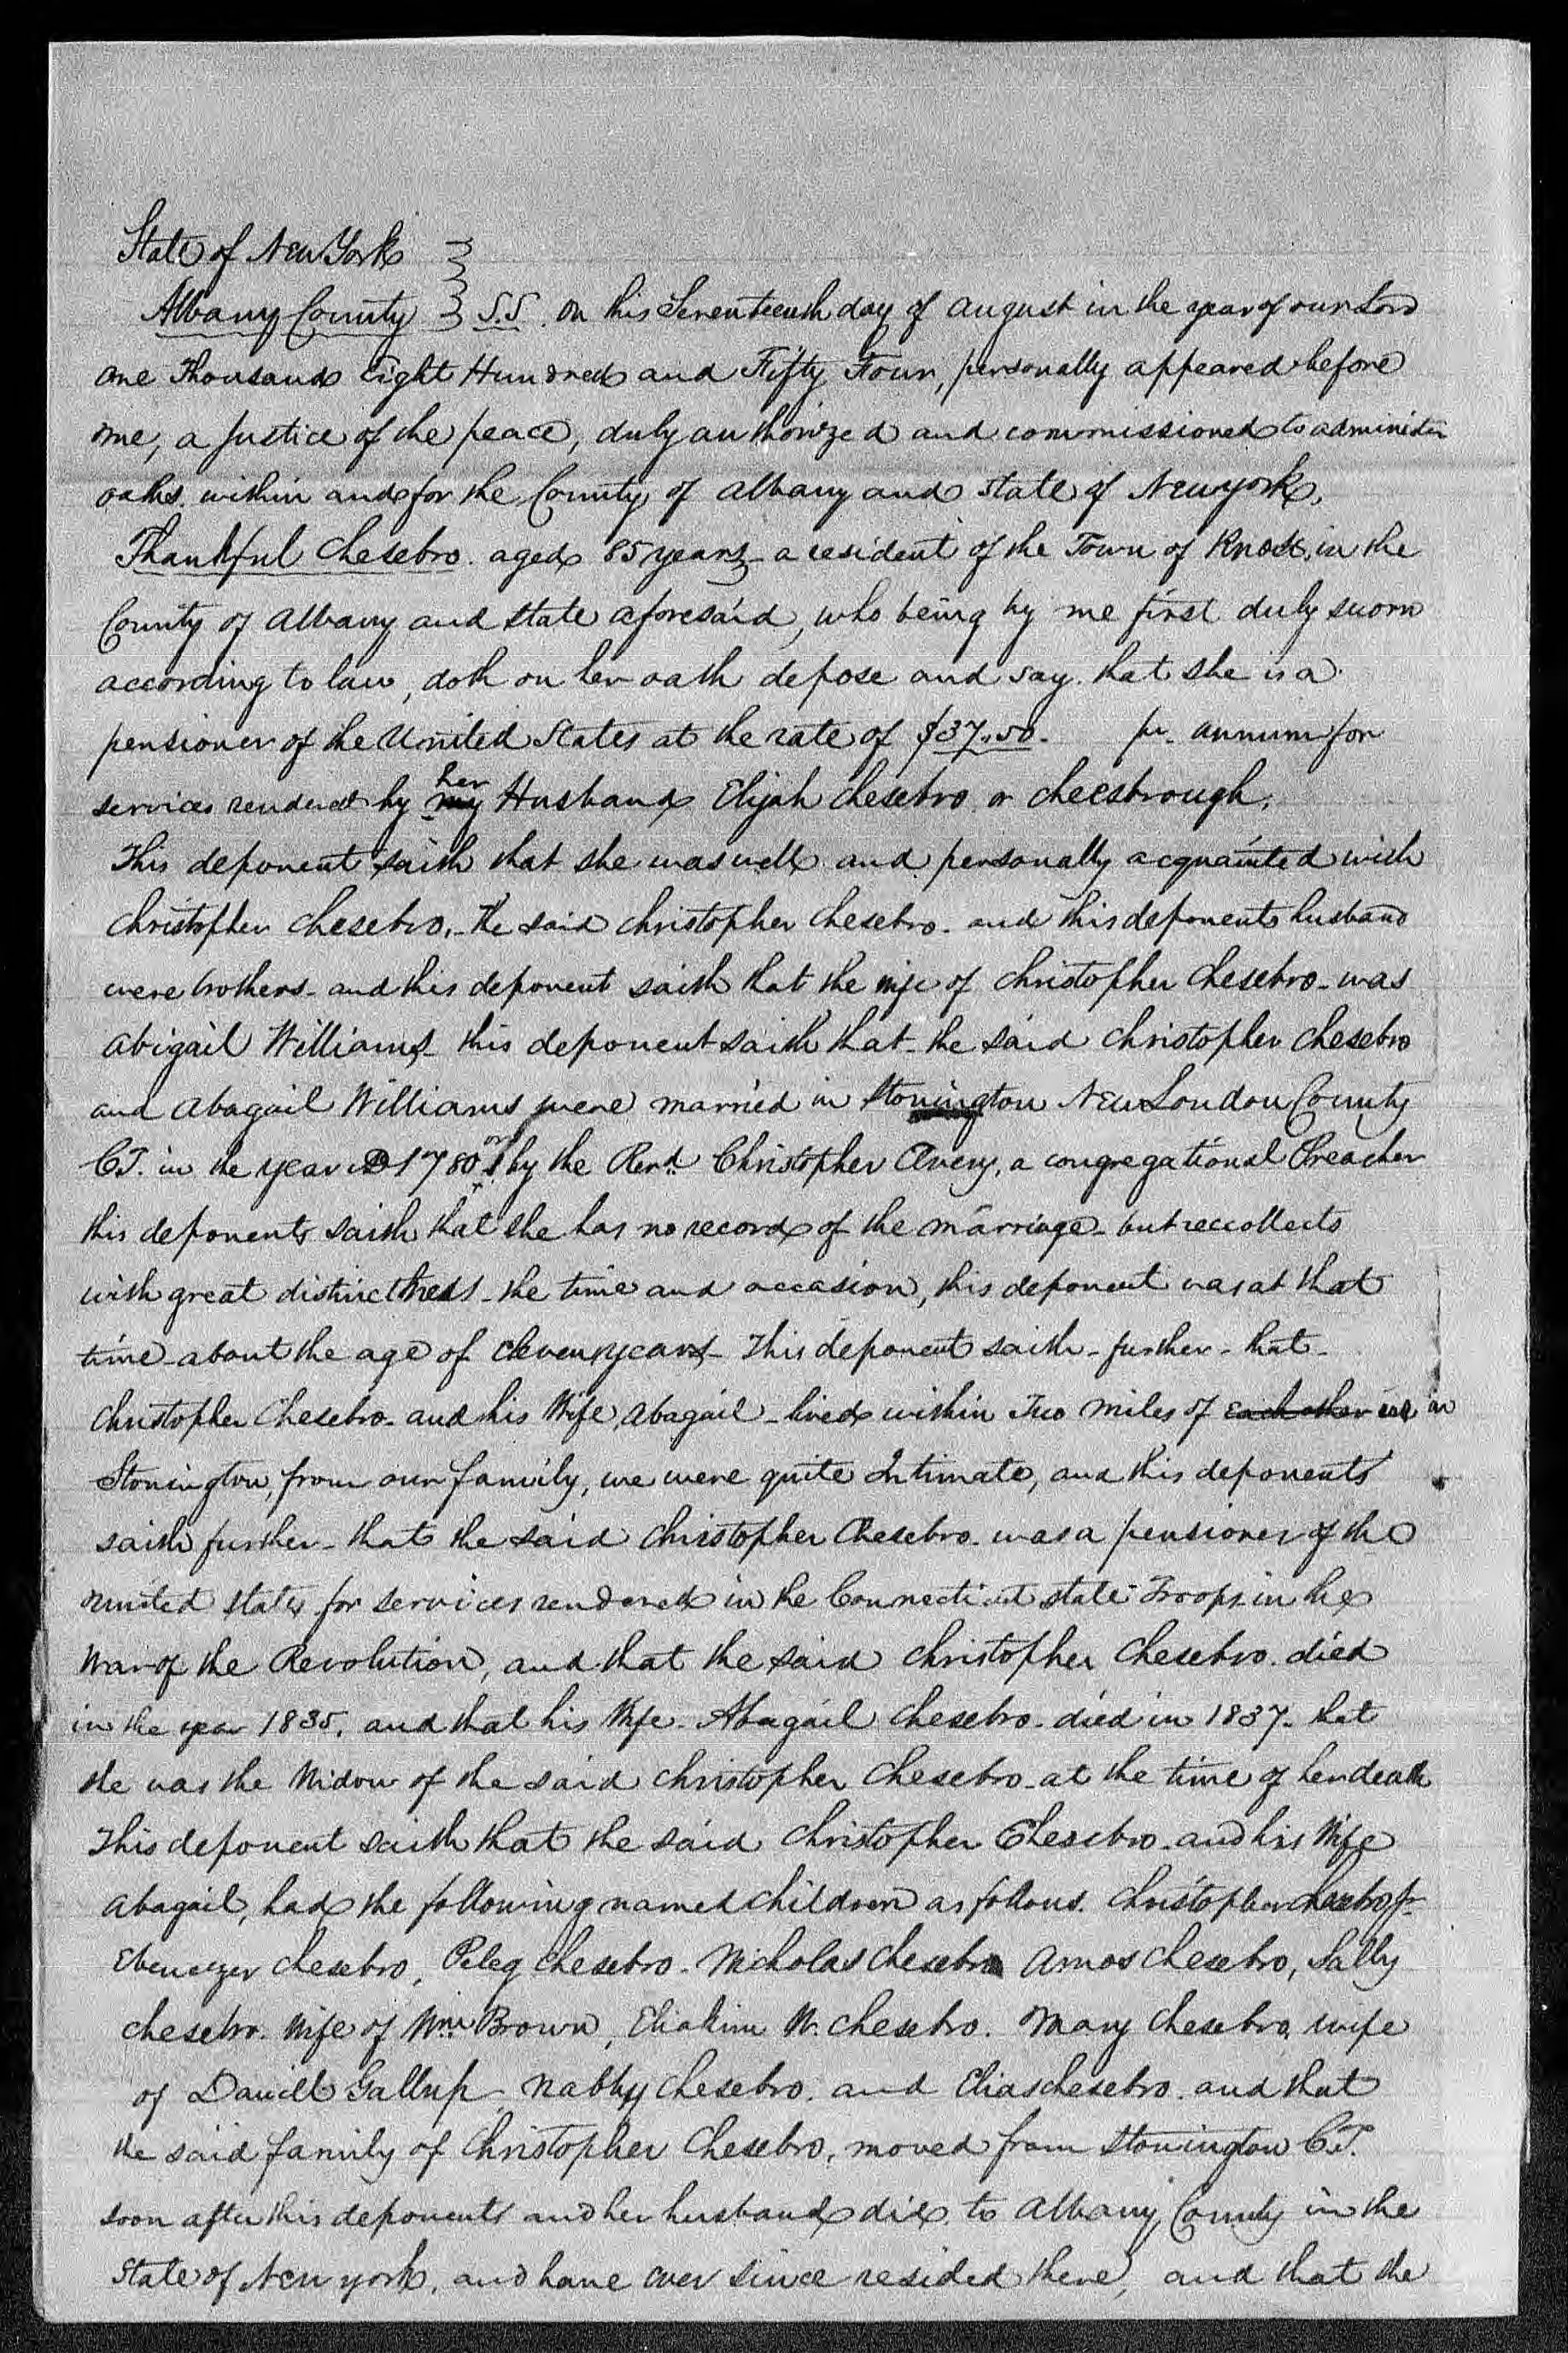 State of New York }
Albany County } S.S. On this Seventeenth day of august in the year of our Lord
one Thousand Eight Hundred and Fifty Four, personally appeared before
me, a Justice of the peace, duly authorized and commissioned to administer
oaths within and for the County of Albany and State of New york,
Thankful Chesebro. aged 85 years - a resident of the Town of Knox, in the
County of Albany and State aforesaid, who being by me first duly sworn
according to law, doth on her oath depose and say. that she is a
pensioner of the United States at the rate of $37.50. pr. annum for
services rendered by my her Husband Elijah Chesebro or Cheesbrough.
This deponent saith that she was well and personally acquainted with
Christopher Chesebro. - The said Christopher Chesebro - and this deponents husband
were brothers - and this deponent saith that the wife of Christopher Chesebro - was
Abigail Williams - this deponent saith that - the said Christopher Chesebro
and Abagail Williams were married in Stonington New London County
CT. in the year 1780 or 1 by the Revd. Christopher Avery, a congregational Preacher
this deponents saith that she has no record of the marriage - but reccollects
with great distinctness - the time and occasion, this deponent was at that
time - about the age of Eleven years - This deponent saith - further - that -
Christopher Chesebro - and his Wife Abagail - lived within Two miles of each other in
Stonington, from our family, we were quite Intimate, and this deponents
saith further - that the said Christopher Chesebro - was a pensioner of the
united states for services rendered in the Connecticut state Troops in the
War of the Revolution, and that the said Christopher Chesebro. died
in the year 1835. and that his Wife - Abagail Chesebro - died in 1837 - that
she was the Widow of the said Christopher Chesebro - at the time of her death
This deponent saith that the said Christopher Chesebro - and his Wife
Abagail, had the following named children as follows. Christopher Chesebro Jr -
Ebenezer Chesebro, Peleg Chesebro - Nicholas Chesebro Amos Chesebro, Sally
Chesebro. Wife of Wm Brown, Eliakim W. Chesebro. Mary Chesebro, wife
of Daniell Gallup - Nabby Chesebro. and Elias Chesebro. and that
the said family of Christopher Chesebro, moved from Stonington CT.
soon after this deponents and her husband did, to Albany County in the
State of New york, and have ever since resided there, and that the